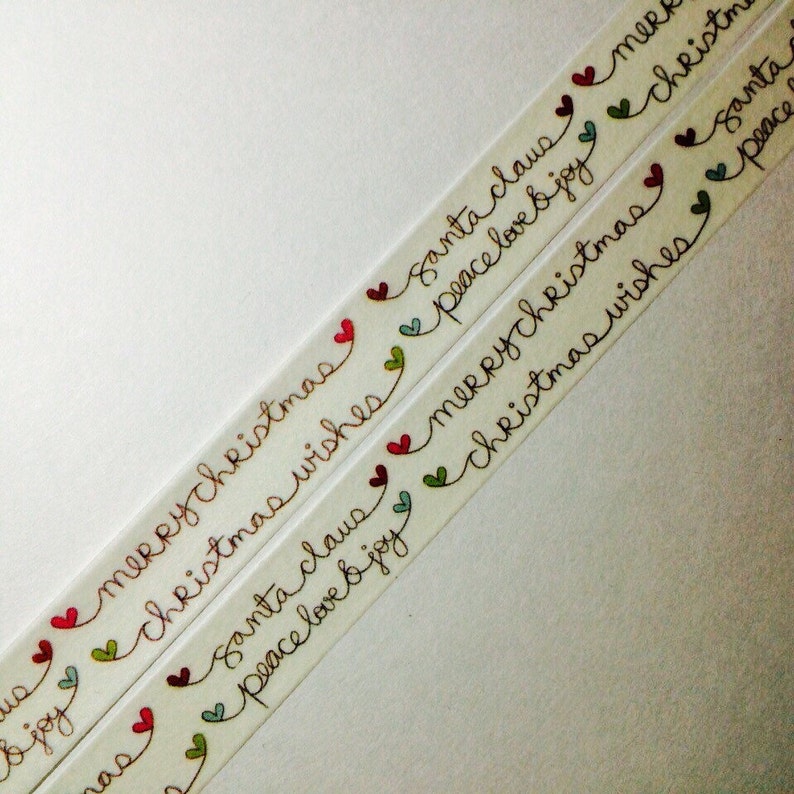 merry christmas
christmas wishes
santa claus
peace love & joy
merry
christmas
claus
& joy
merry christmas
christmas wishes
santa claus
peace love & joy
santa
peace
christmas
wishes